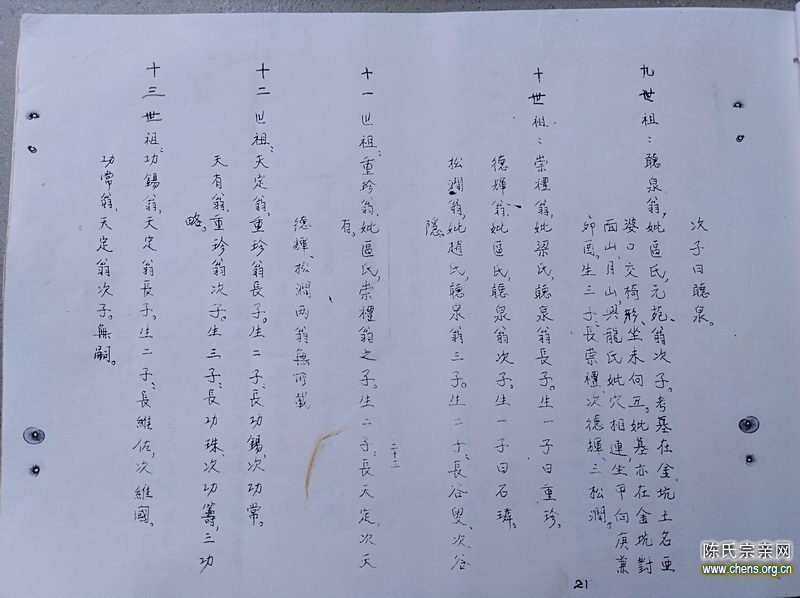 次子曰聽泉。
九世祖：聽泉翁，妣區氏，元乾翁次子。考墓在金坑土名亜
婆口交椅形坐未向丑。妣墓亦在金坑對
面山月山，與龍氏妣穴相連，坐甲向庚兼
卯酉。生三子：長崇禮、次德輝、三松澗。
十世祖：崇禮翁，妣梁氏，聽泉翁長子。生一子曰重珍。
德輝翁，妣區氏，聽泉翁次子。生一子曰石璘。
松澗翁，妣趙氏，聽泉翁三子。生二子：長谷叟、次谷
隱。
十一世祖：重珍翁，妣區氏，崇禮翁之子。生二子：長天定，次天
有。
德輝、松澗两翁無所載
十二世祖：天定翁，重珍翁長子。生二子：長功錫、次功常。
天有翁，重珍翁次子。生三子：長功珠、次功籌，三功
略。
十三世祖：功錫翁，天定翁長子。生二子：長維佐，次維國。
功常翁，天定翁次子。無嗣。
二十二
21
陈氏宗亲网
www.chens.org.cn